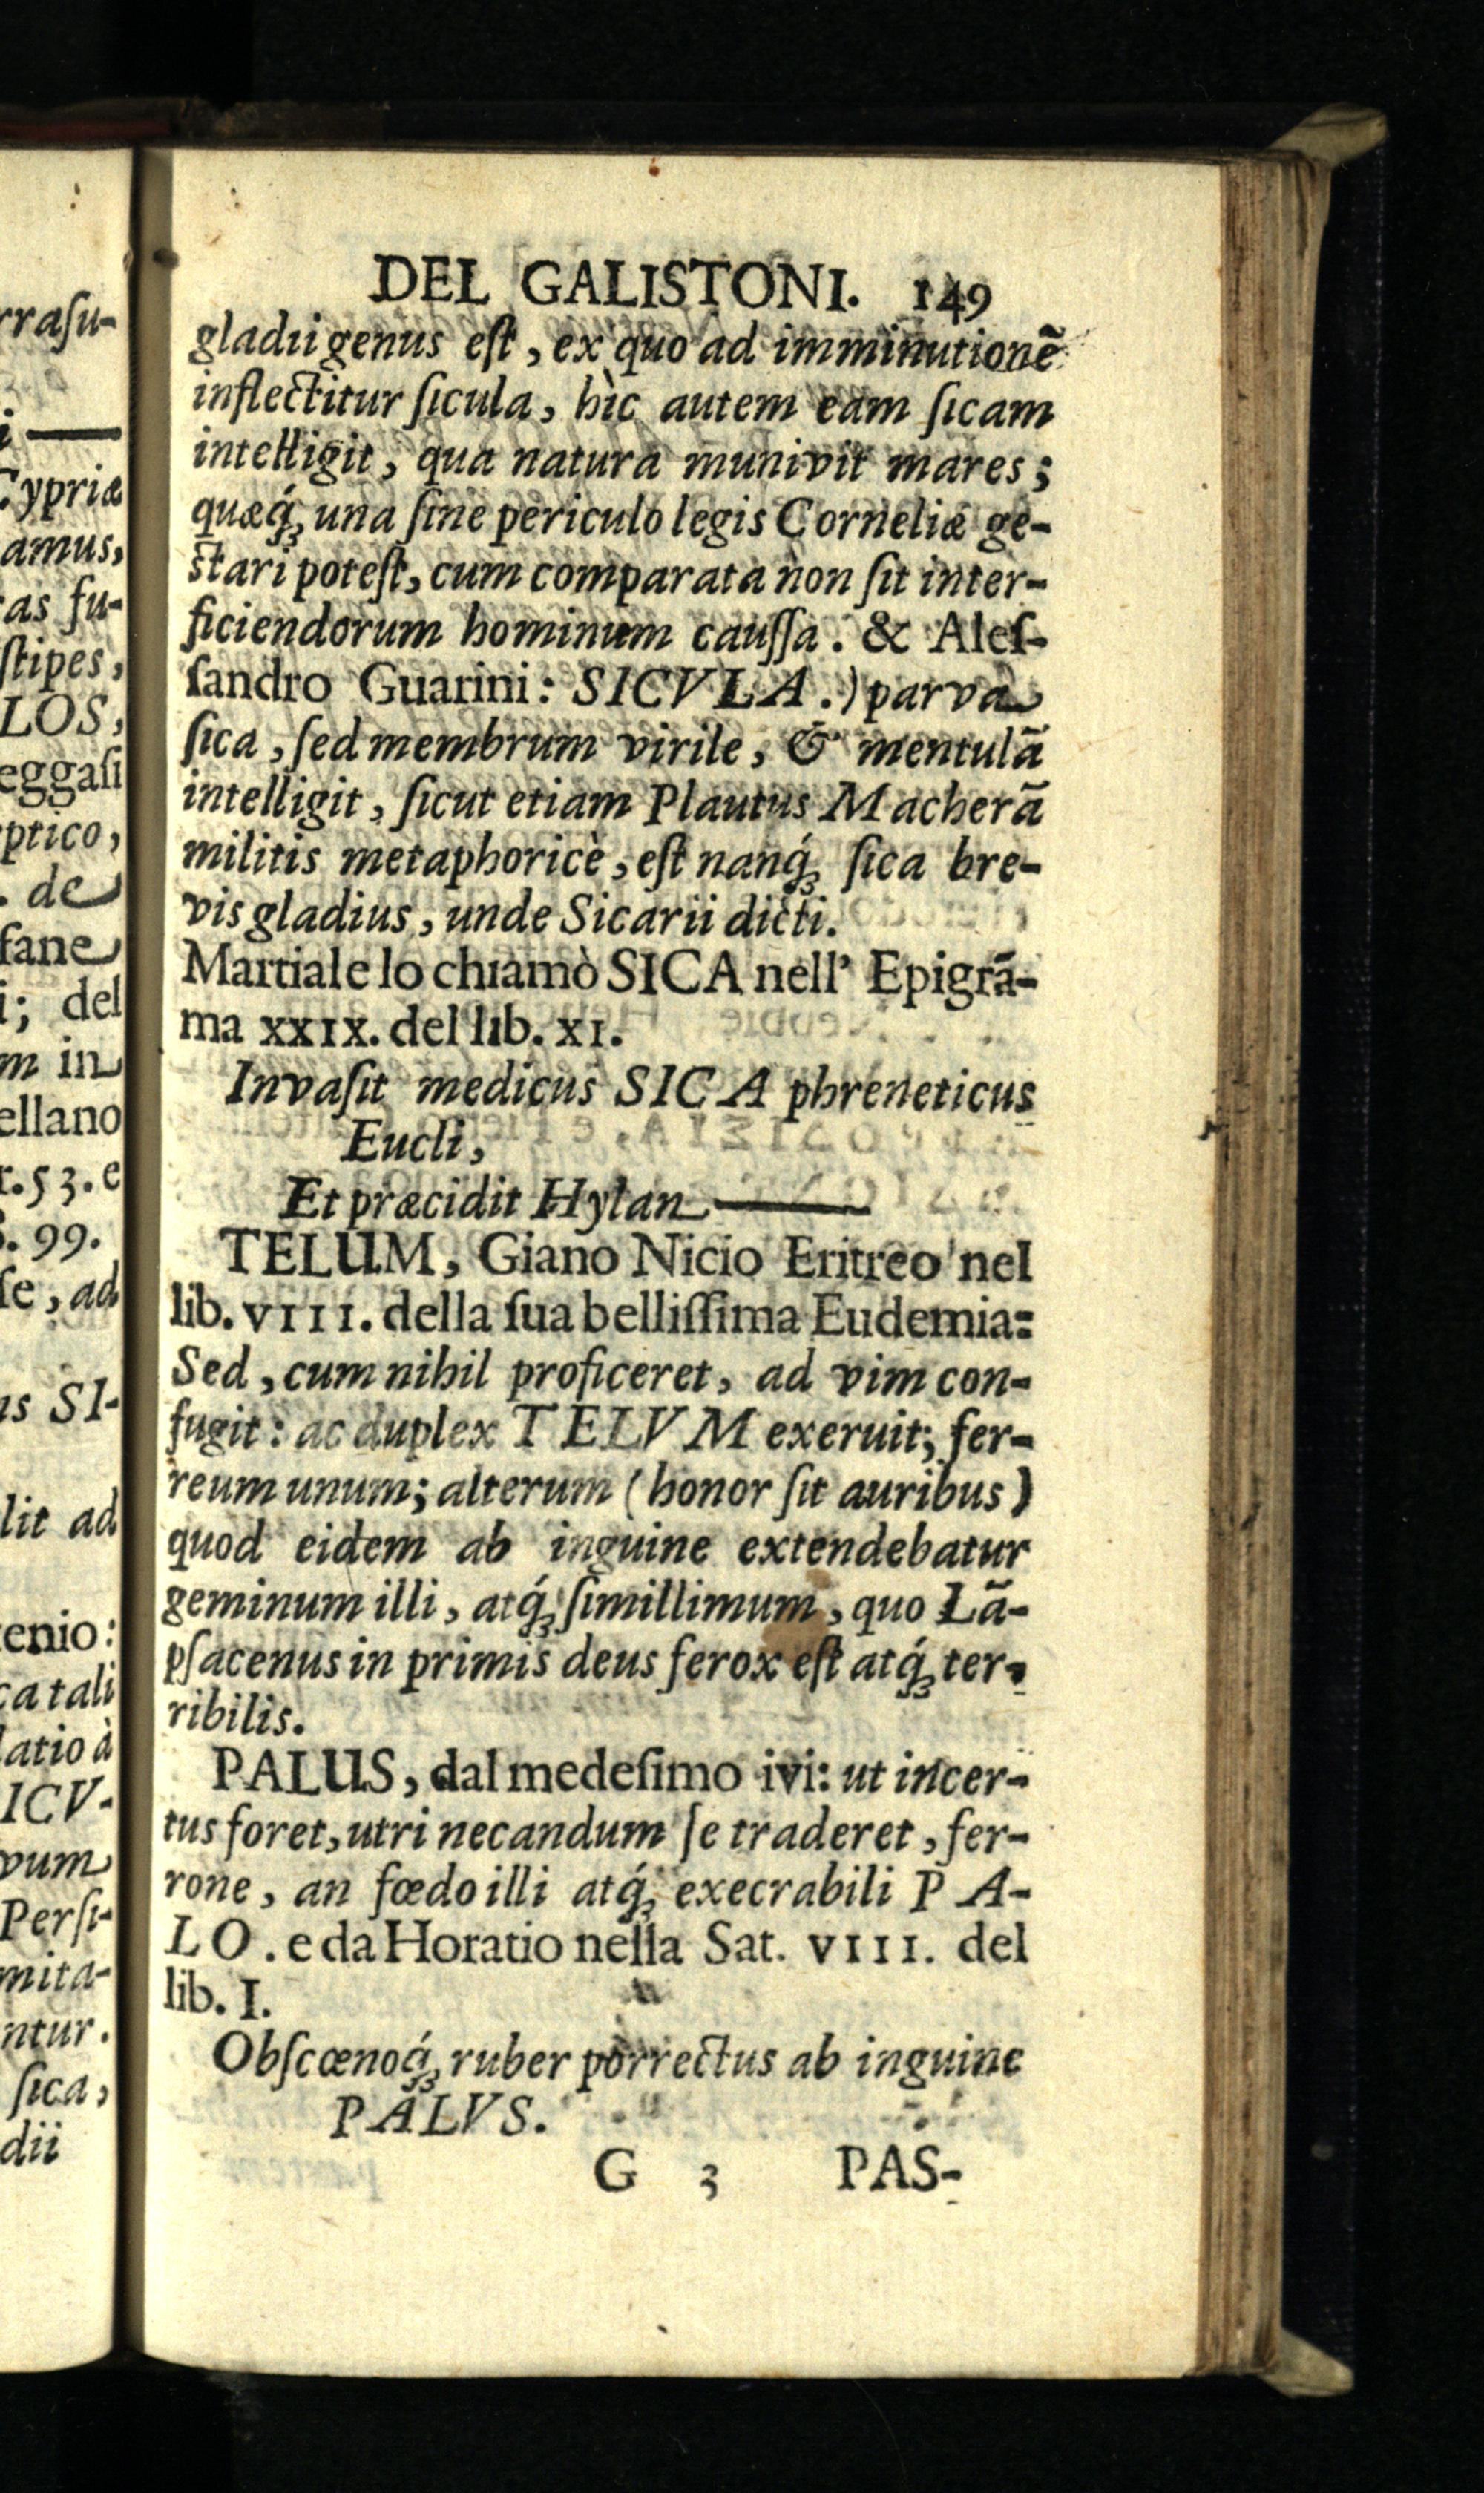 DEL GALISTONI. 149
gladii genus eſt, ex quo ad imminutionẽ
inflectitur ſicula, hìc autem eam ſicam
intelligit, qua natura munivit mares;
quæq́ꝫ una ſine periculo legis Corneliæ ge-
ſtari poteſt, cum comparata non ſit inter-
ficiendorum hominum cauſſa. & Aleſ-
ſandro Guarini: SICVLA.) parva
ſica, ſed membrum virile, & mentulã
intelligit, ſicut etiam Plautus Macherã
militis metaphoricè, eſt nanq́ꝫ ſica bre-
vis gladius, unde Sicarii dicti.
Martiale lo chiamò SICA nell' Epigrã-
ma XXIX. del lib. XI.
Invaſit medicus SICA phreneticus
Eucli,
Et præcidit Hylan ———
TELUM, Giano Nicio Eritreo nel
lib. VIII. della ſua belliſſima Eudemia:
Sed, cum nihil proficeret, ad vim con-
fugit: ac duplex TELVM exeruit; fer-
reum unum; alterum (honor ſit auribus)
quod eidem ab inguine extendebatur
geminum illi, atq́ꝫ ſimillimum, quo Lã-
pſacenus in primis deus ferox eſt atq́ꝫ ter-
ribilis.
PALUS, dal medeſimo ivi: ut incer-
tus foret, utri necandum ſe traderet, fer-
rone, an fœdo illi atq́ꝫ execrabili PA-
LO. e da Horatio nella Sat. VIII. del
lib. I.
Obſcœnoq́ꝫ ruber porrectus ab inguine
PALVS.
G 3 PAS-
rraſu-
i ——
Cypriæ
amus,
as fu-
ſtipes,
LOS,
eggaſi
ptico,
. de
fane
i; del
m in
ellano
r. 53. e
. 99.
ſe, ad
us SI-
lit ad
tenio:
ca tali
latio à
ICV-
vum
Perſi-
mita-
ntur.
ſica,
dii